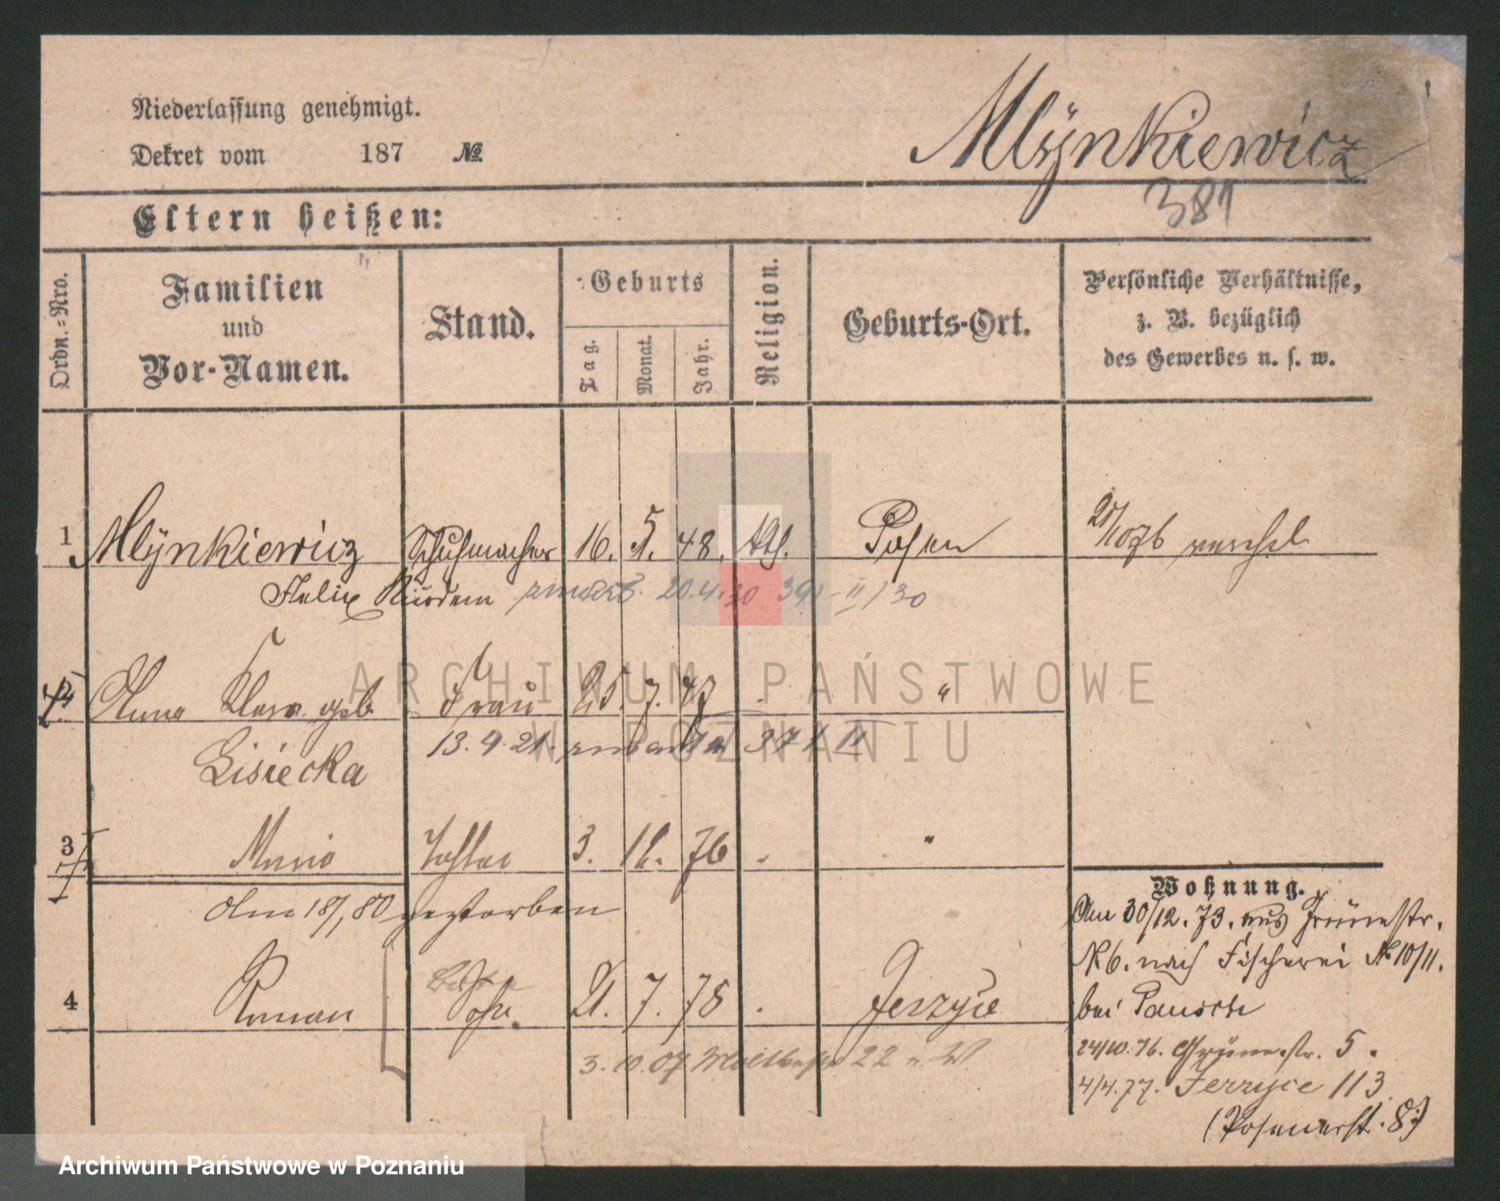 Niederlassung genehmigt.
Dekret vom 187 №
Mlÿnkiewicz
381
Eltern heißen:
Ordn.=Nro.
Familien
und
Vor-Namen.
Stand.
Geburts
Tag.
Monat.
Jahr.
Religion.
Geburts-Ort.
Persönliche Verhältnisse,
z. B. bezüglich
des Gewerbes u. s. w.
1 Mlÿnkiewicz Schuhmacher 16. 5. 48. kth. Posen 21/10 76
Felix 20.4.30 II/30
Anna geb Frau 25. 7. 47 "
Lisiecka 13.9.21. 371 II
3 Maria Tochter 3. 11. 76 . "
Am 18/1,80 gestorben
4 Roman Sohn. 21. 7. 78 . Jerzyce
3.10.07 22
Wohnung.
Am 30/12.73. aus Grünestr.
N 6. nach Fischerei № 10/11.
bei
24/10.76. Grünestr. 5.
4/4.77. Jerzyce 113.
(Posenerst. 8.)
ARCHIWUM PAŃSTWOWE
W POZNANIU
Archiwum Państwowe w Poznaniu